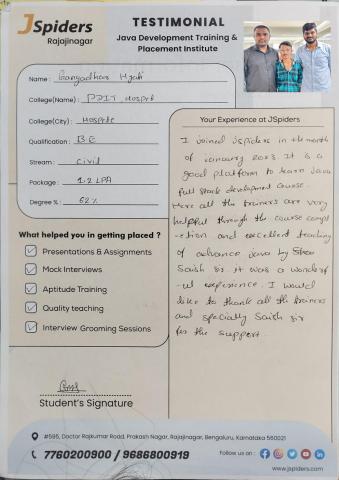 JSpiders
Rajajinagar
TESTIMONIAL
Java Development Training &
Placement Institute
Name : Gangadhar Hyati
College(Name) : PDIT, Hospet
College(City) : Hospete
Qualification : B E
Stream : Civil
Package : 1.2 LPA
Degree % : 62%
What helped you in getting placed ?
Presentations & Assignments
Mock Interviews
Aptitude Training
Quality teaching
Interview Grooming Sessions
Your Experience at JSpiders
I joined jspiders in the month
of January 2023. It is a
good platform to learn Java
full stack development course.
Here all the trainers are very
helpful through the course compl
-etion and excellent teaching
of advance java by
Saish sir. It was a wonderf
-ul experience. I would
like to thank all the trainers
and specially Saish sir
for the support.
Student's Signature
#595, Doctor Rajkumar Road, Prakash Nagar, Rajajinagar, Bengaluru, Karnataka 560021
7760200900 / 9686800919
Follow us on :
www.jspiders.com